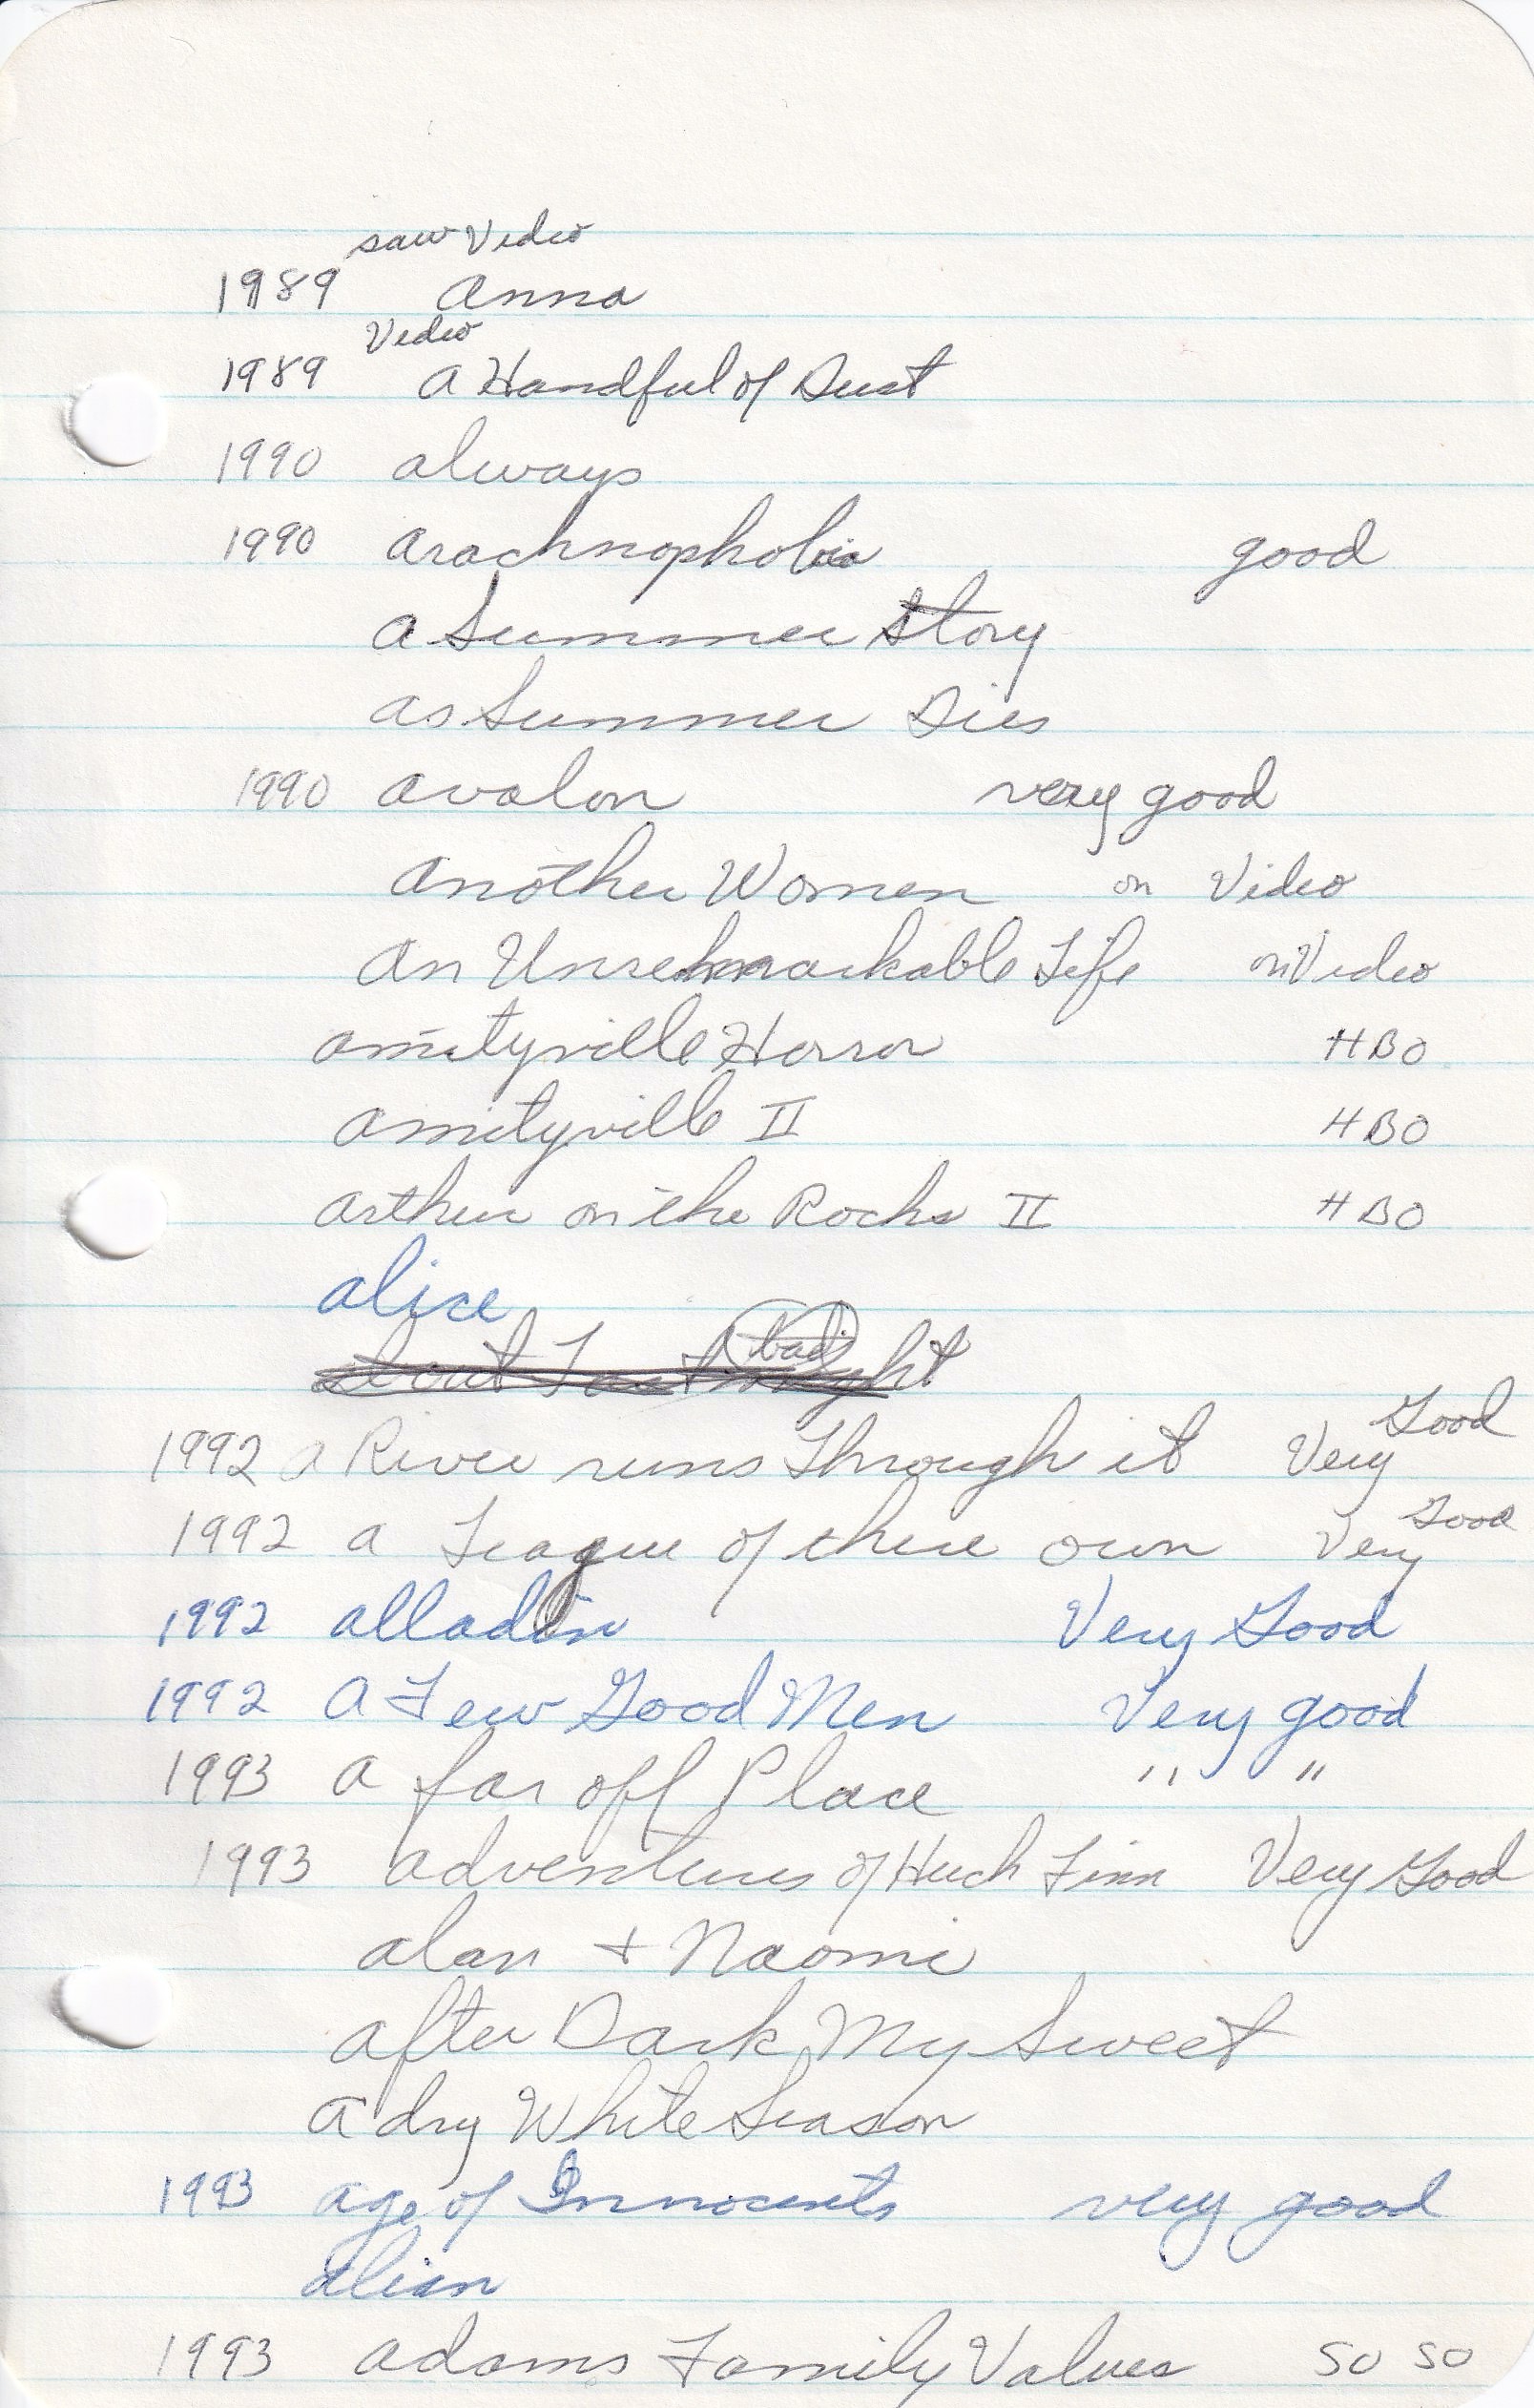 saw Video
1989 Anna
Video
1989 A Handful of Dust
1990 always
1990 arachnophobia good
a Summer Story
as Summer Dies
1990 avalon very good
another Women on Video
an Unremarkable Life on Video
amityville Horror HBO
amityville II HBO
arthur on the Rocks II HBO
alice
about Last night bad
1992 a River runs Through it Very Good
1992 a League of there own Very Good
1992 alladin Very Good
1992 A Few Good Men Very good
1993 a far off Place " "
1993 adventures of Huck Finn Very Good
alan + Naomi
after Dark My Sweet
a dry White Season
1993 age of Innocents very good
alien
1993 adams Family Values so so